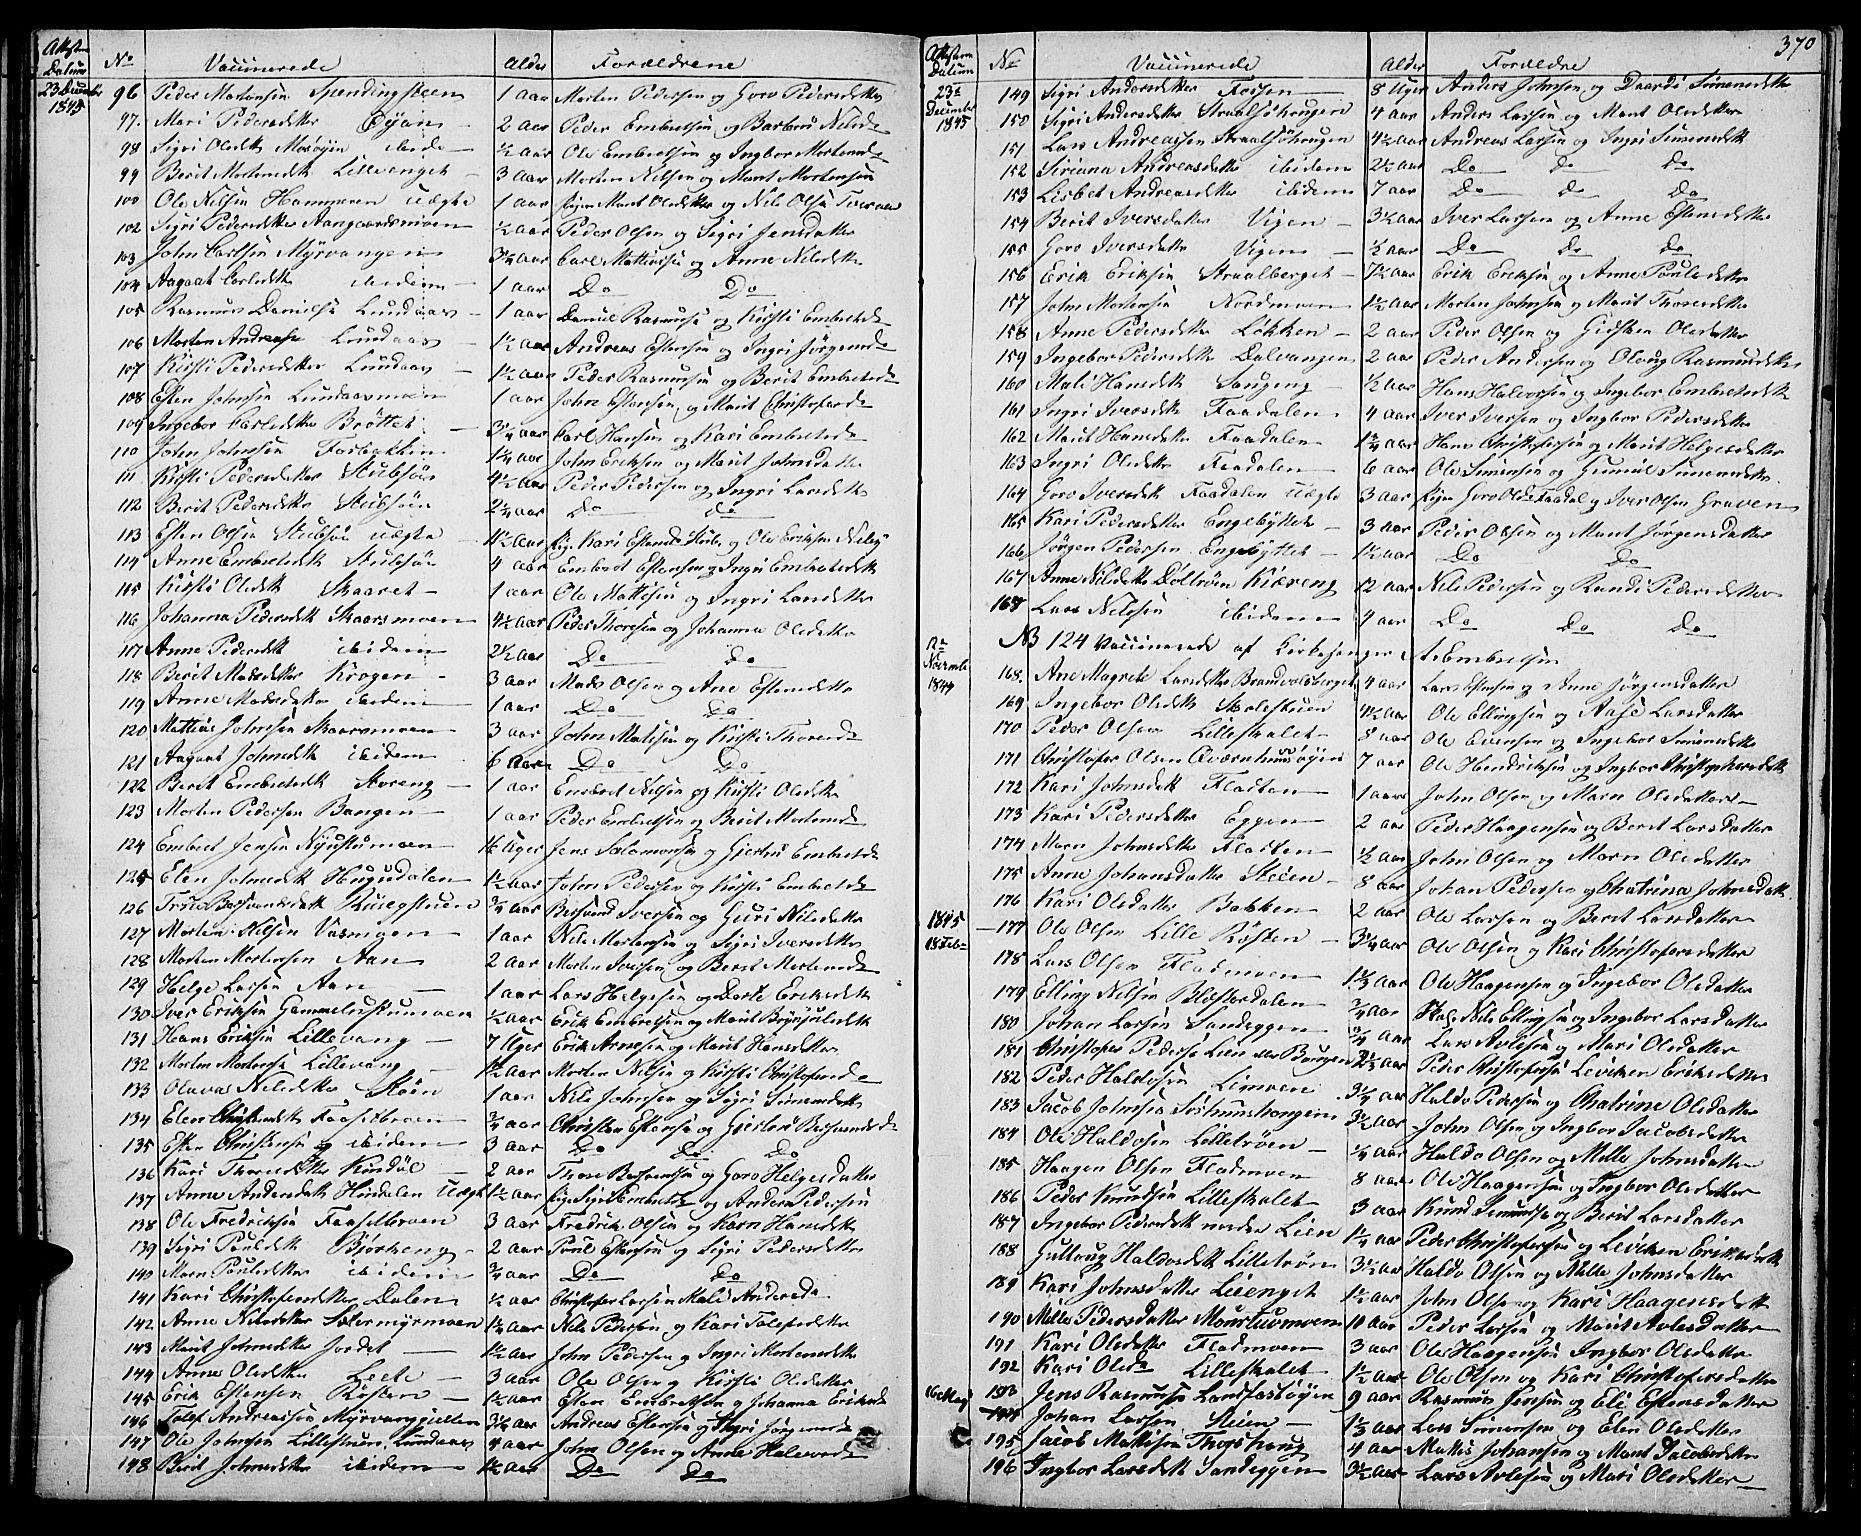 Attesten Datum No Vaccinerede Alder Forældrene
23 December 1845 96 Peder Mortensen Spendingsteen 1 aar Morten Pedersen og Goro Pedersdatter
97. Mari Pedersdatter Øyan 2 aar Peder Embretsen og Barbro Nilsd
98 Sigri Olsdtr Mosøyen ibide ½ aar Ole Embretsen og Ingbor Mortensd
99 Berit Mortensdtr Lillevenget 3 aar Morten Nilsen og Marit Mortensen
100 Ole Nilsen Hammeren Uægte 1 aar Pigen Marit Olsdatter og Nils Olsen
102 Sigri Pedersdatter Aangaardsmoen ½ aar Peder Olsen og Sigri Jensdatter
103 John Carlsen Myrvangen 3¼ aar Carl Mathissen og Anne Nilsdtr
104 Aagaat Carlsdtr ibidem 1 aar Do Do
105 Rasmus Danielsen Lundaas 1 aar Daniel Rasmusen og Kirsti Embretsd
106 Morten Andreasen Lundaas 1½ aar Andreas Estensen og Ingri Jørgensd
107 Kirsti Pedersdatter Lundaas 1½ aar Peder Rasmusen og Berit Embretsd
108 Esten Johnsen Lundaasmoen 1 aar John Estensen og Marit Christofersd
109 Ingebor Carlsdatter Brøttet 3¼ aar Carl Hansen og Kari Embretsd
110 John Johnsen Forbækken 1¼ aar John Eriksen og Marit Johnsdatter
111 Kirsti Pedersdatter Stubsøe 4½ aar Peder Pedersen og Ingri Larsdtr
112 Berit Pedersdatter Stubsøen 2¼ aar Do do
113 Esten Olsen Stubsøe uægte 1½ aar Pige Kari Estensd Stubs og Ole Eriksen Nileby
114 Anne Embretsdtr Stubsøe 4 aar Embret Estensen og Ingri Embretsdtr
115 Kirsti Olsdtr Skaaret 1 aar Ole Mathisen og Ingri Larsdatter
116 Johanna Pedersdtr Skaarsmoen 4½ aar Peder Thoresen og Johanna Olsdatter
117 Anne Pedersdtr ibidem 2½ aar Do Do
118 Berit Madsdatter Krogen 3 aar Mads Olsen og Ane Estensdatter
119 Anne Madsdatter ibidem 1 aar Do Do
120 Mathias Johnsen Skaarsmoen 3 aar John Mathisen og Kirsti Thoresd
121 Aagaat Johnsdtr ibidem 6 aar Do Do
122 Berit Embretsdtr Aoreng 1 aar Embret Nilsen og Kirsti Olsdtr
123 Morten Pedersen Bangen 1 aar Peder Embretsen og Berit Mortensd
124 Embret Jensen Nystumoen 16 Uger Jens Salomonsen og Gjertru Embretsd
125 Elen Johnsdtr Hugudalen 1½ aar John Pedersen og Kirsti Embretsd
126 ¾ aar Iversen og Guri Nilsdatter
127 Morten Nilsen Vasengen 1 aar Nils Mortensen og Sigri Iversdatter
128 Morten Mortensen Aan 2 aar Morten Iversen og Berit Mortensd
129 Helge Larsen Aan 1 aar Lars Helgesen og Dorte Eriksdtr
130 Iver Eriksen Gammelustumoen ½ aar Erik Embretsen og Marit Brynjulsdtr
131 Hans Eriksen Lillevang 7 Uger Erik Arnesen og Marit Hansdatter
132 Morten Mortensen Lillevang 1½ aar Morten Nilsen og Kirsti Christofersd
133 Olava Nilsdatter Støen 1 aar Nils Johnsen og Sigri Simensdtr
134 Elen Christensdtr Faaselbroen ¾ aar Christen Estensen og Gjertru
135 Esten Christensen ibidem 3 aar Do Do Do
136 Kari Thoresdatter Kindøl 2 aar Thore og Goro Helgesdatter
137 Anne Andersdtr Hindalen Uægt 1½ aar Pige Sigri Embretsd og Anders Pedersen
138 Ole Fredriksen Faaselbroen 3 aar Fredrik Olsen og Karn Hansdtr
139 Sigri Poulsdtr Bjørkeng 2 aar Poul Estensen og Sigri Pedersdatter
140 Marn Poulsdatter ibidem ¾ aar Do Do
141 Kari Christofersdatter Dalen ½ aar Christofer Larsen Mali Andersd
142 Anne Nilsdatter Sætermyrmoen 1¼ aar Nils Pedersen og Kari Tolefsdatter
143 Marit Johnsdatter Jordet 1½ aar John Pedersen og Ingri Mortensdtr
144 Anne Olsdatter Leete 3 aar Ole Olsen og Kirsti Olsdatter
145 Erik Estensen Røsten 1½ aar Esten Embretsen og Johanna Eriksd
146 Tolef Andreassen Myrvangjellen 3½ aar Andreas Estensen og Ingri Jørgensd
147 Ole Johnsen Lillestuen, Lundaas 4 aar John Olsen og Anne Halvorsd
148 Berit Johnsdatter ibidem 1½ aar Do Do
370
Attestens Datum No Vaccinerede Alder Forældre
23de December 1845 149 Sigri Andersdatter Fossen 8 Uger Anders Johnsen og Daardi Simensdtr
150 Sigri Andersdatter Straalsjøhaugen 4 aar Anders Larsen og Marit Olsdatter
151 Lars Andreassen Straalsjøhaugen 4½ aar Andreas Larsen og Ingri Simensdtr
152 Siriana Andreasdtr ibidem 2½ aar Do do do
153 Lisbet Andreasdtr ibidem 7 aar Do do Do
154 Berit Iversdatter Vigen 3½ aar Iver Larsen og Anne Estensdtr
155 Goro Iversdatter Vigen ½ aar Do Do Do
156 Erik Eriksen Straalberget 7½ aar Erik Eriksen og Anne Poulsdtr
157 John Mortensen Nordmoen 1½ aar Morten Johnsen og Marit Thoresdtr
158 Anne Pedersdtr Løkken 2 aar Peder Olsen og Gidsken Olsdatter
159 Ingebor Pedersdtr Dalvangen 2 aar Peder Andersen og Oloug Rasmusdtr
160 Mali Hansdtr Sangeng ½ aar Hans Halvorsen og Ingebor Embretsdtr
161 Ingri Iversdtr Faadalen 4 aar Iver Iversen og Ingbor Pedersdtr
162 Marit Hansdtr Faadalen 1¾ aar Hans Christofersen og Marit Helgesdatter
163 Ingri Olsdtr Faadalen 6 aar Ole Simensen og Gunnil Simensdtr
164 Goro Iversdtr Faadalen Uægte 3 aar Pige Goro Olsd Faadal og Iver Olsen Graven
165 Kari Pedersdtr Engebyttet 3 aar Peder Olsen og Marit Jørgensdatter
166 Jørgen Pedersen Engebyttet 1½ aar Do Do
167 Anne Nilsdtr Døllmoen Kiæreng 12 aar Nils Pedersen og Randi Pedersdatter
168 Lars Nilsen ibidem 9 aar Do Do Do
NB 124 Vaccinerede af Kirkesanger A. Embretsen
12te Novembr 1844 168. Ane Magrete Larsdatter Brandvolsberget 4 aar Lars Estensen og Anne Jørgensdatter
169 Ingebor Olsdtr Skolestuen 1½ aar Ole Ellingsen og Aase Larsdatter
170 Peder Olsen Lilleskalet 8 aar Ole Evensen og Ingebor Simensdtr
171 Christofer Olsen Qværnhuusøyen 7 aar Ole Hendriksen og Ingbor Christophersdtr
172 Kari Johnsdtr Fladsen 1 aar John Olsen og Marn Olsdatter
173 Kari Pedersdtr Eggen 2 aar Peder Haagensen og Berit Larsdatter
174 Marn Johnsdtr Fladsen ½ aar John Olsen og Marn Olsdatter
175 Anne Johansdatter Steien 8 aar Johan Pedersen og Chatrina Johnsdatt
176 Kari Olsdatter Bakken 2 aar Ole Larsen og Berit Larsdatter
1845 18 Febr 177 Ole Olsen Lille Røsten 3¼ aar Ole Olsen og Kari Christofersdatter
178 Lars Olsen Fladmoen 1⅓ aar Ole Haagensen og Ingebor Olsdatter
179 Elling Nilsen Blæsterdalen ¾ aar Nils Ellingsen og Ingebor Larsdatter
180 Johan Larsen Sandeggen ¾ aar Lars Avlesen og Mari Olsdatter
181 Christofer Pedersen Lien Bangen 2⅓ aar Peder Christofersen Leviken Eriksdatter
182 Peder Haldosen Limoen 3¼ aar Haldo Pedersen og Chatrine Olsdatter
183 Jacob Johnsen 3½ aar John Olsen og Ingbor Jacobsdatter
184 Ole Haldosen Lilletrøen ¼ aar Haldo Olsen og Mille Johnsdatter
185 Haagen Olsen Fladmoen 8 aar Ole Haagensen og Ingbor Olsdatter
186 Peder Knudsen Lilleskalet 3 aar Knud Simensen og Berit Larsdatter
187 Ingebor Pedersdtr nedre Lien 1¼ aar Peder Christofersen og Leviken Eriksdatt
188 Gullaug Haldosdtr Lilletrøen 3½ aar Haldo Olsen og Mille Johnsdatter
189 Kari Johnsdatter Lienget 1½ aar John Olsen og Kari Haagensdatter
190 Mille Pedersdatter Monstuemoen 10 aar Peder Larsen og Marit Avlesdatter
191 Kari Olsdatter Fladmoen 3 aar Ole Haagensen Ingbor Olsdatter
192 Kari Olsda Lilleskalet 1½ aar Ole Olsen og Kari Christofersdatter
16 Maj 193 Jens Rasmusen Landfastøyen 9 aar Rasmus Jensen og Eli Estensdatter
194 Johan Larsen Steien 1⅓ aar Lars Simensen og Elen Olsdatter
195 Jacob Mathisen Thorshaug 4 aar Mathis Johansen og Marit Jacobsdatter
196 Ingbor Larsdtr Sandeggen 3½ aar Lars Avlesen og Mari Olsdatter